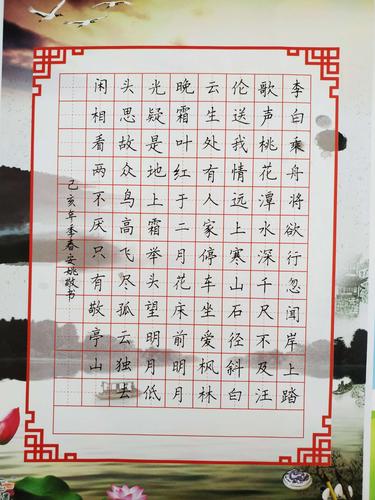 李白乘舟将欲行忽闻岸上踏
歌声桃花潭水深千尺不及汪
伦送我情远上寒山石径斜白
云生处有人家停车坐爱枫林
晚霜叶红于二月花床前明月
光疑是地上霜举头望明月低
头思故众鸟高飞尽孤云独去
闲相看两不厌只有敬亭山
己亥年季春安姚敬书